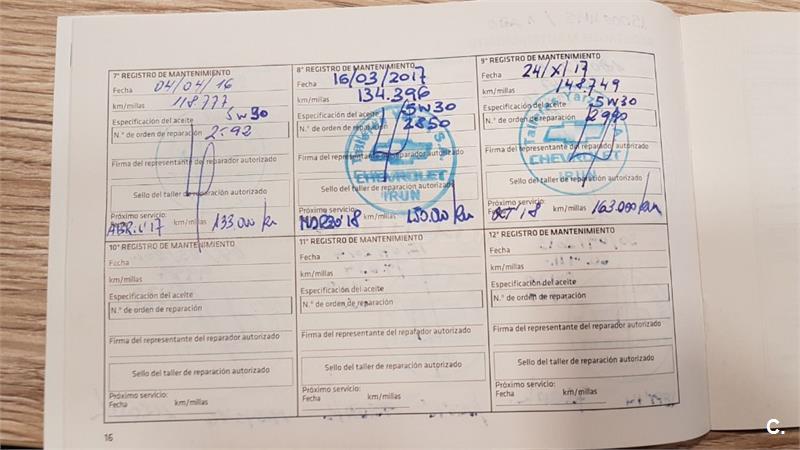 7° REGISTRO DE MANTENIMIENTO
Fecha 04/04/16
km/millas 118777
Especificación del aceite 5w30
N.° de orden de reparación 2592
Firma del representante del reparador autorizado
Sello del taller de reparación autorizado
Próximo servicio:
Fecha ABRIL 17 km/millas 133.000 km
8° REGISTRO DE MANTENIMIENTO
Fecha 16/03/2017
km/millas 134.396
Especificación del aceite 5w30
N.° de orden de reparación 2850
Firma del representante del reparador autorizado
CHEVROLET
Sello del taller de reparación autorizado
IRUN
Próximo servicio:
Fecha MARZO 18 km/millas km
9° REGISTRO DE MANTENIMIENTO
Fecha 24/X/17
km/millas 148.749
Especificación del aceite 5w30
N.° de orden de reparación 2990
Firma del representante del reparador autorizado
CHEVROLET
Sello del taller de reparación autorizado
IRUN
Próximo servicio:
Fecha OCT 18 km/millas 163.000 km
10° REGISTRO DE MANTENIMIENTO
Fecha
km/millas
Especificación del aceite
N.° de orden de reparación
Firma del representante del reparador autorizado
Sello del taller de reparación autorizado
Próximo servicio:
Fecha km/millas
11° REGISTRO DE MANTENIMIENTO
Fecha
km/millas
Especificación del aceite
N.° de orden de reparación
Firma del representante del reparador autorizado
Sello del taller de reparación autorizado
Próximo servicio:
Fecha km/millas
12° REGISTRO DE MANTENIMIENTO
Fecha
km/millas
Especificación del aceite
N.° de orden de reparación
Firma del representante del reparador autorizado
Sello del taller de reparación autorizado
Próximo servicio:
Fecha km/millas
16
C.